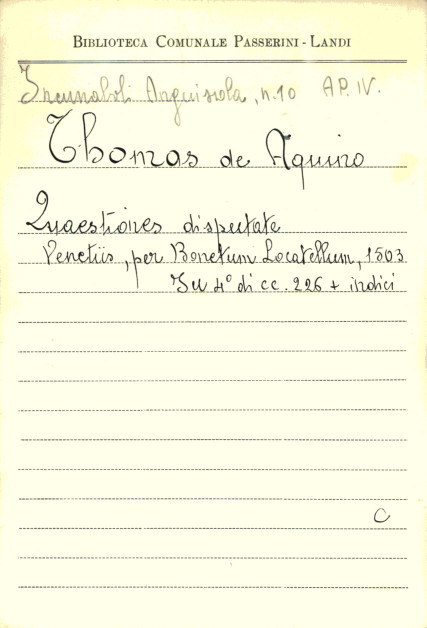 BIBLIOTECA COMUNALE PASSERINI - LANDI
Incunaboli Anguissola, n. 10 AP. IV.
Thomas de Aquino
Quaestiones disputate
Venetiis, per Bonetum Locatellum, 1503
In 4° di cc. 226 + indici
C